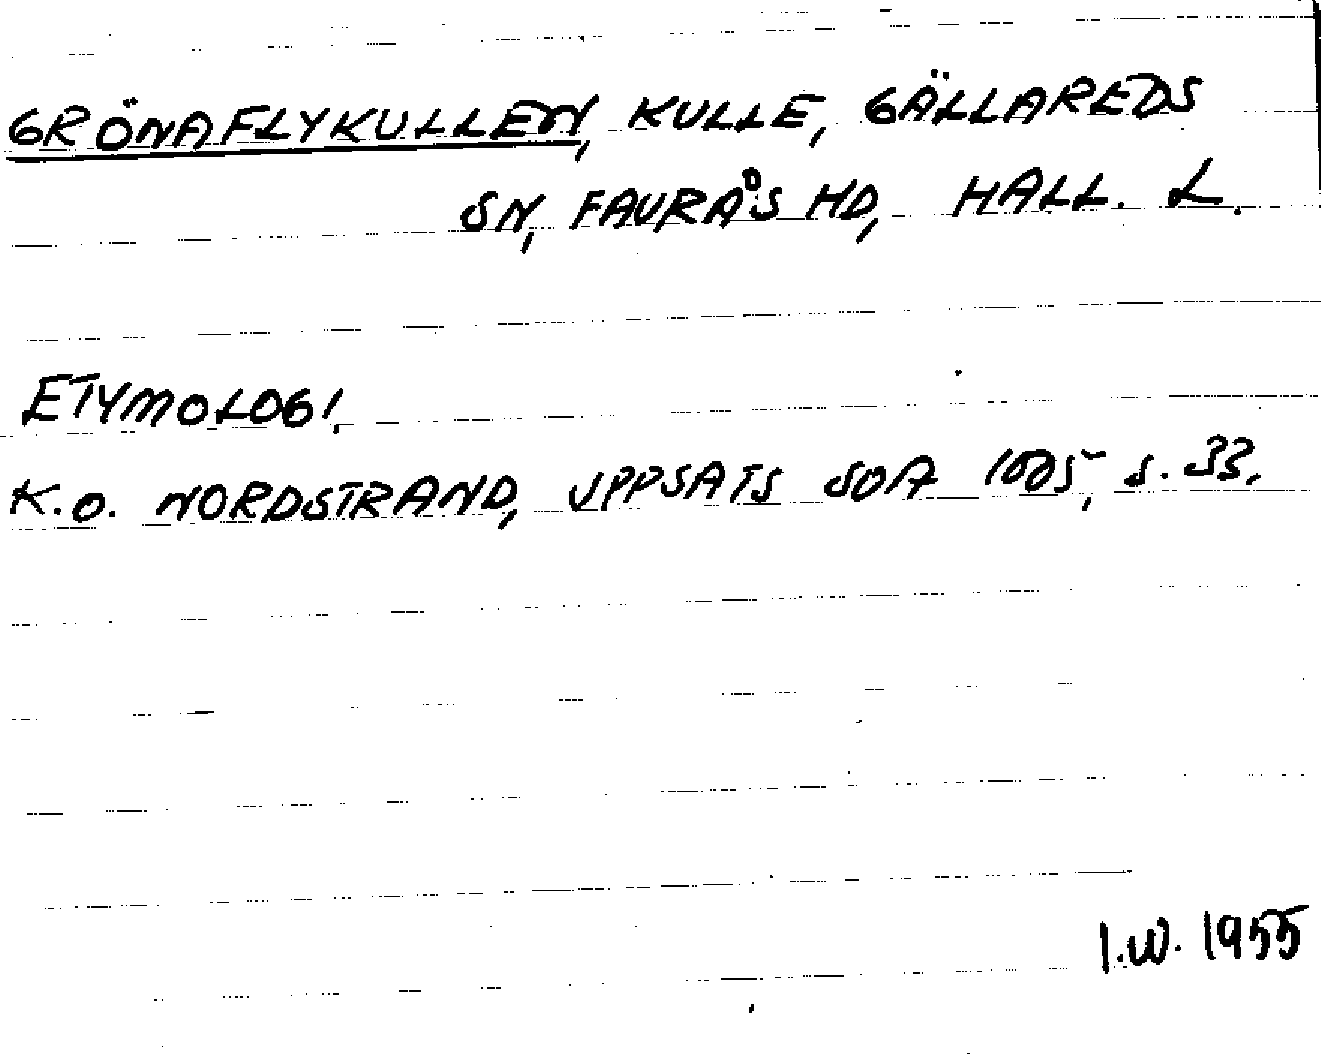 GRÖNAFLYKULLEN, KULLE, GÄLLAREDS
SN, FAURÅS HD, HALL. L.
ETYMOLOGI.
K.O. NORDSTRAND, UPPSATS SOA 1005, S. 33.
I.W. 1955